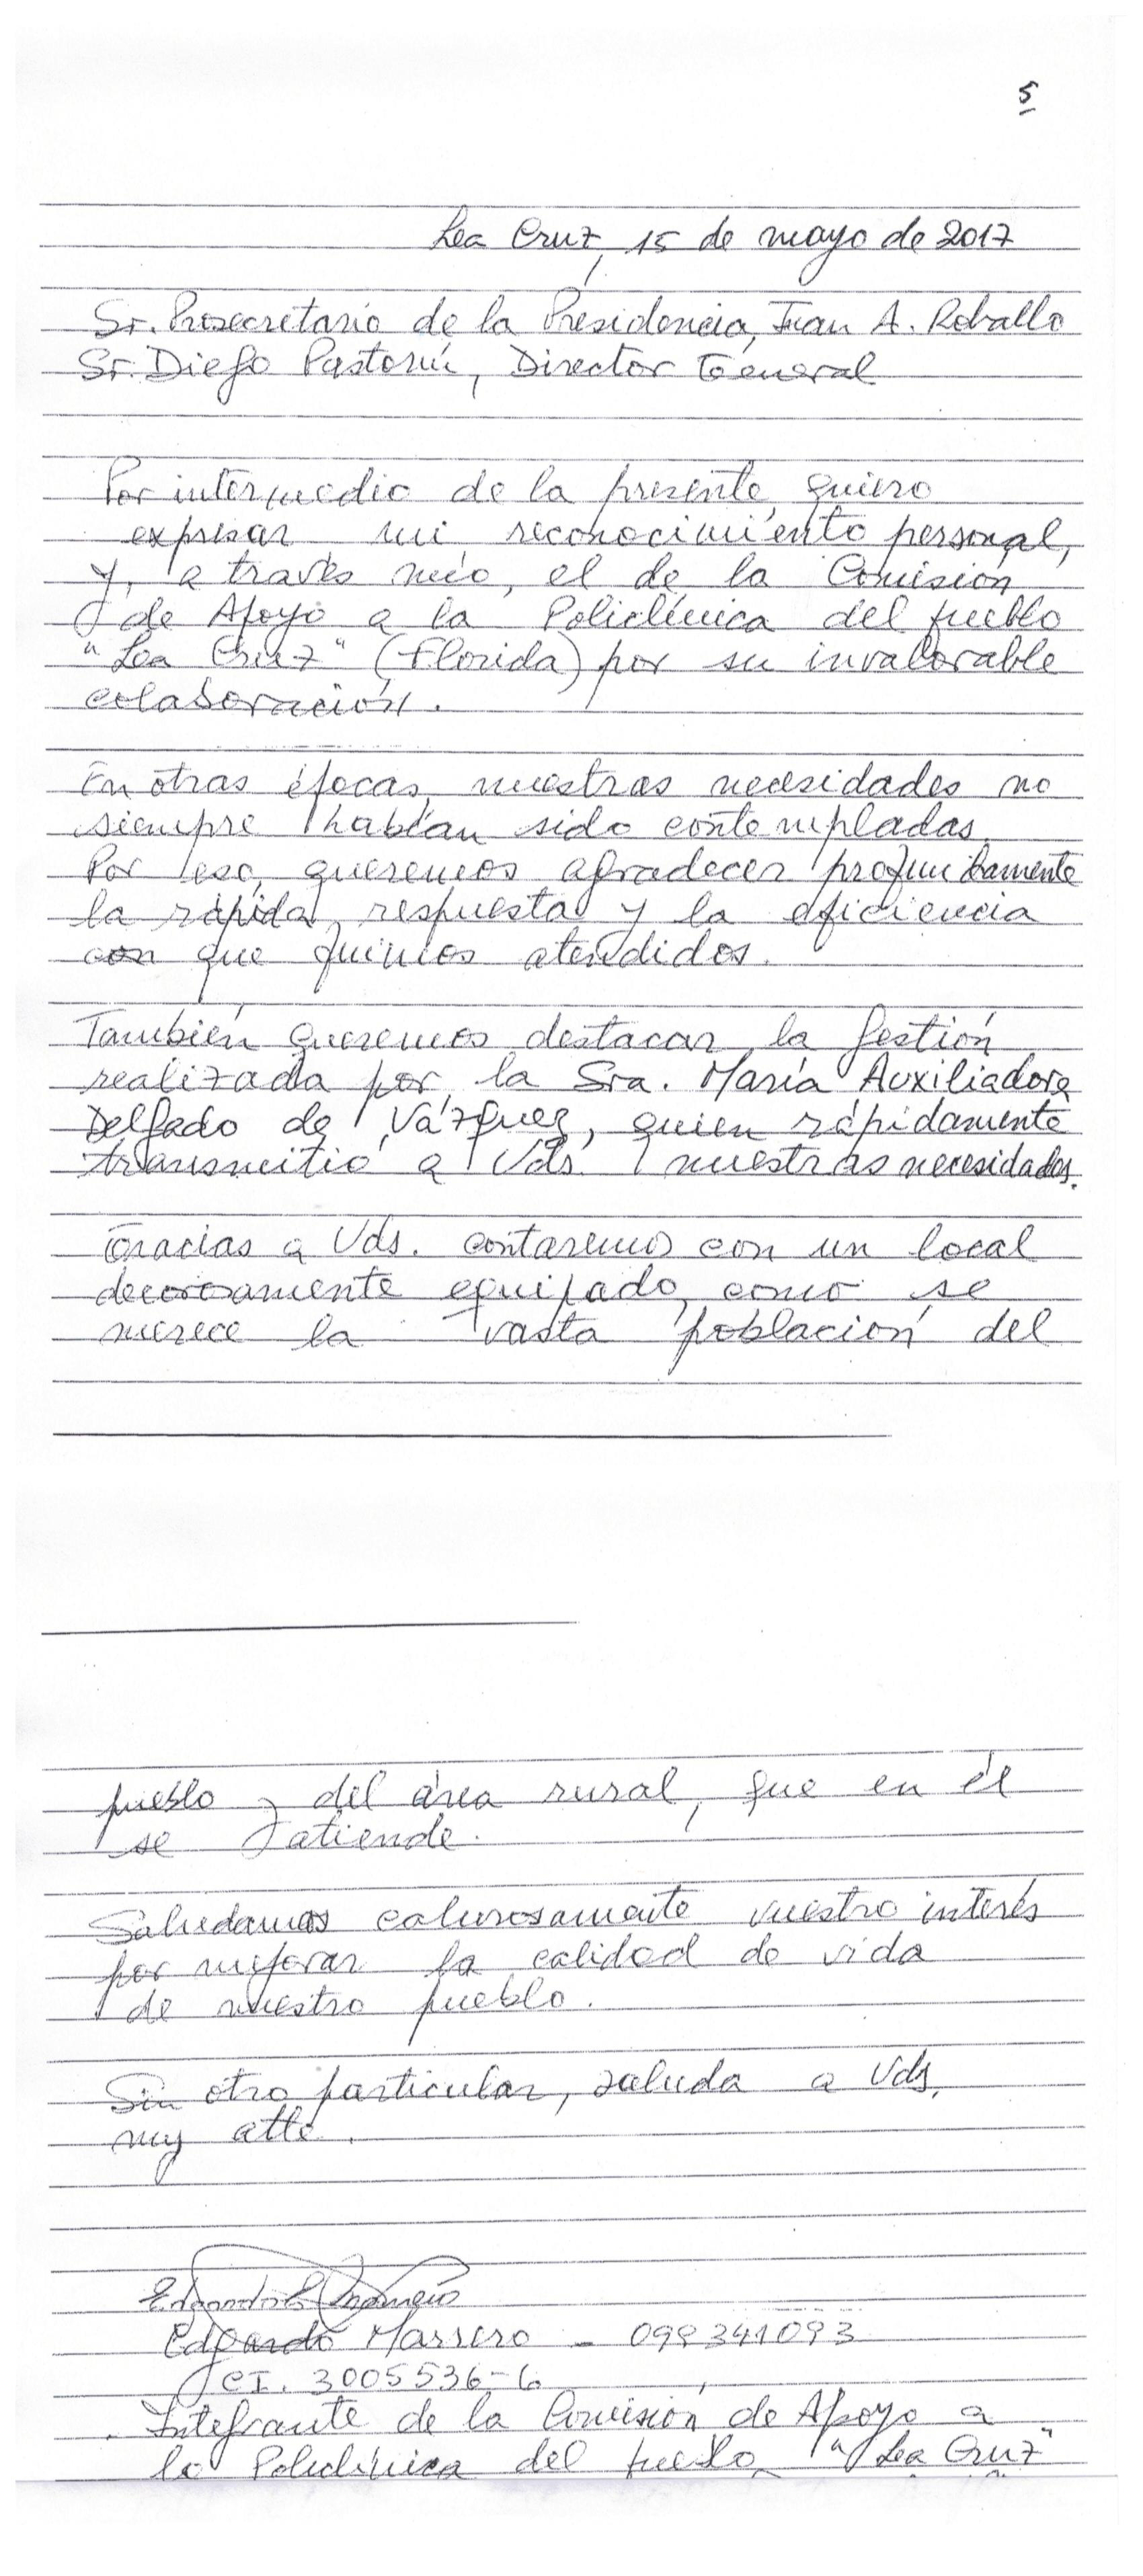 5
La Cruz, 15 de mayo de 2017
Sr. Prosecretario de la Presidencia, Juan A. Roballo
Sr. Diego Pastorín, Director General
Por intermedio de la presente, quiero
expresar mi reconocimiento personal,
y, a través mío, el de la Comisión
de Apoyo a la Policlínica del pueblo
"La Cruz" (Florida) por su invalorable
colaboración.
En otras épocas, nuestras necesidades no
siempre habían sido contempladas.
Por eso, queremos agradecer profundamente
la rápida respuesta y la eficiencia
con que fuimos atendidos.
También queremos destacar la gestión
realizada por la Sra. María Auxiliadora
Delgado de Vázquez, quien rápidamente
transmitió a Vds. nuestras necesidades.
Gracias a Vds. contaremos con un local
decorosamente equipado, como se
merece la vasta población del
pueblo y del área rural, que en él
se atiende.
Saludamos calurosamente vuestro interés
por mejorar la calidad de vida
de nuestro pueblo.
Sin otro particular, saluda a Vds.
muy atte.
Edgardo Marrero - 099341093
CI. 3005536-6
Integrante de la Comisión de Apoyo a
la Policlínica del pueblo "La Cruz"